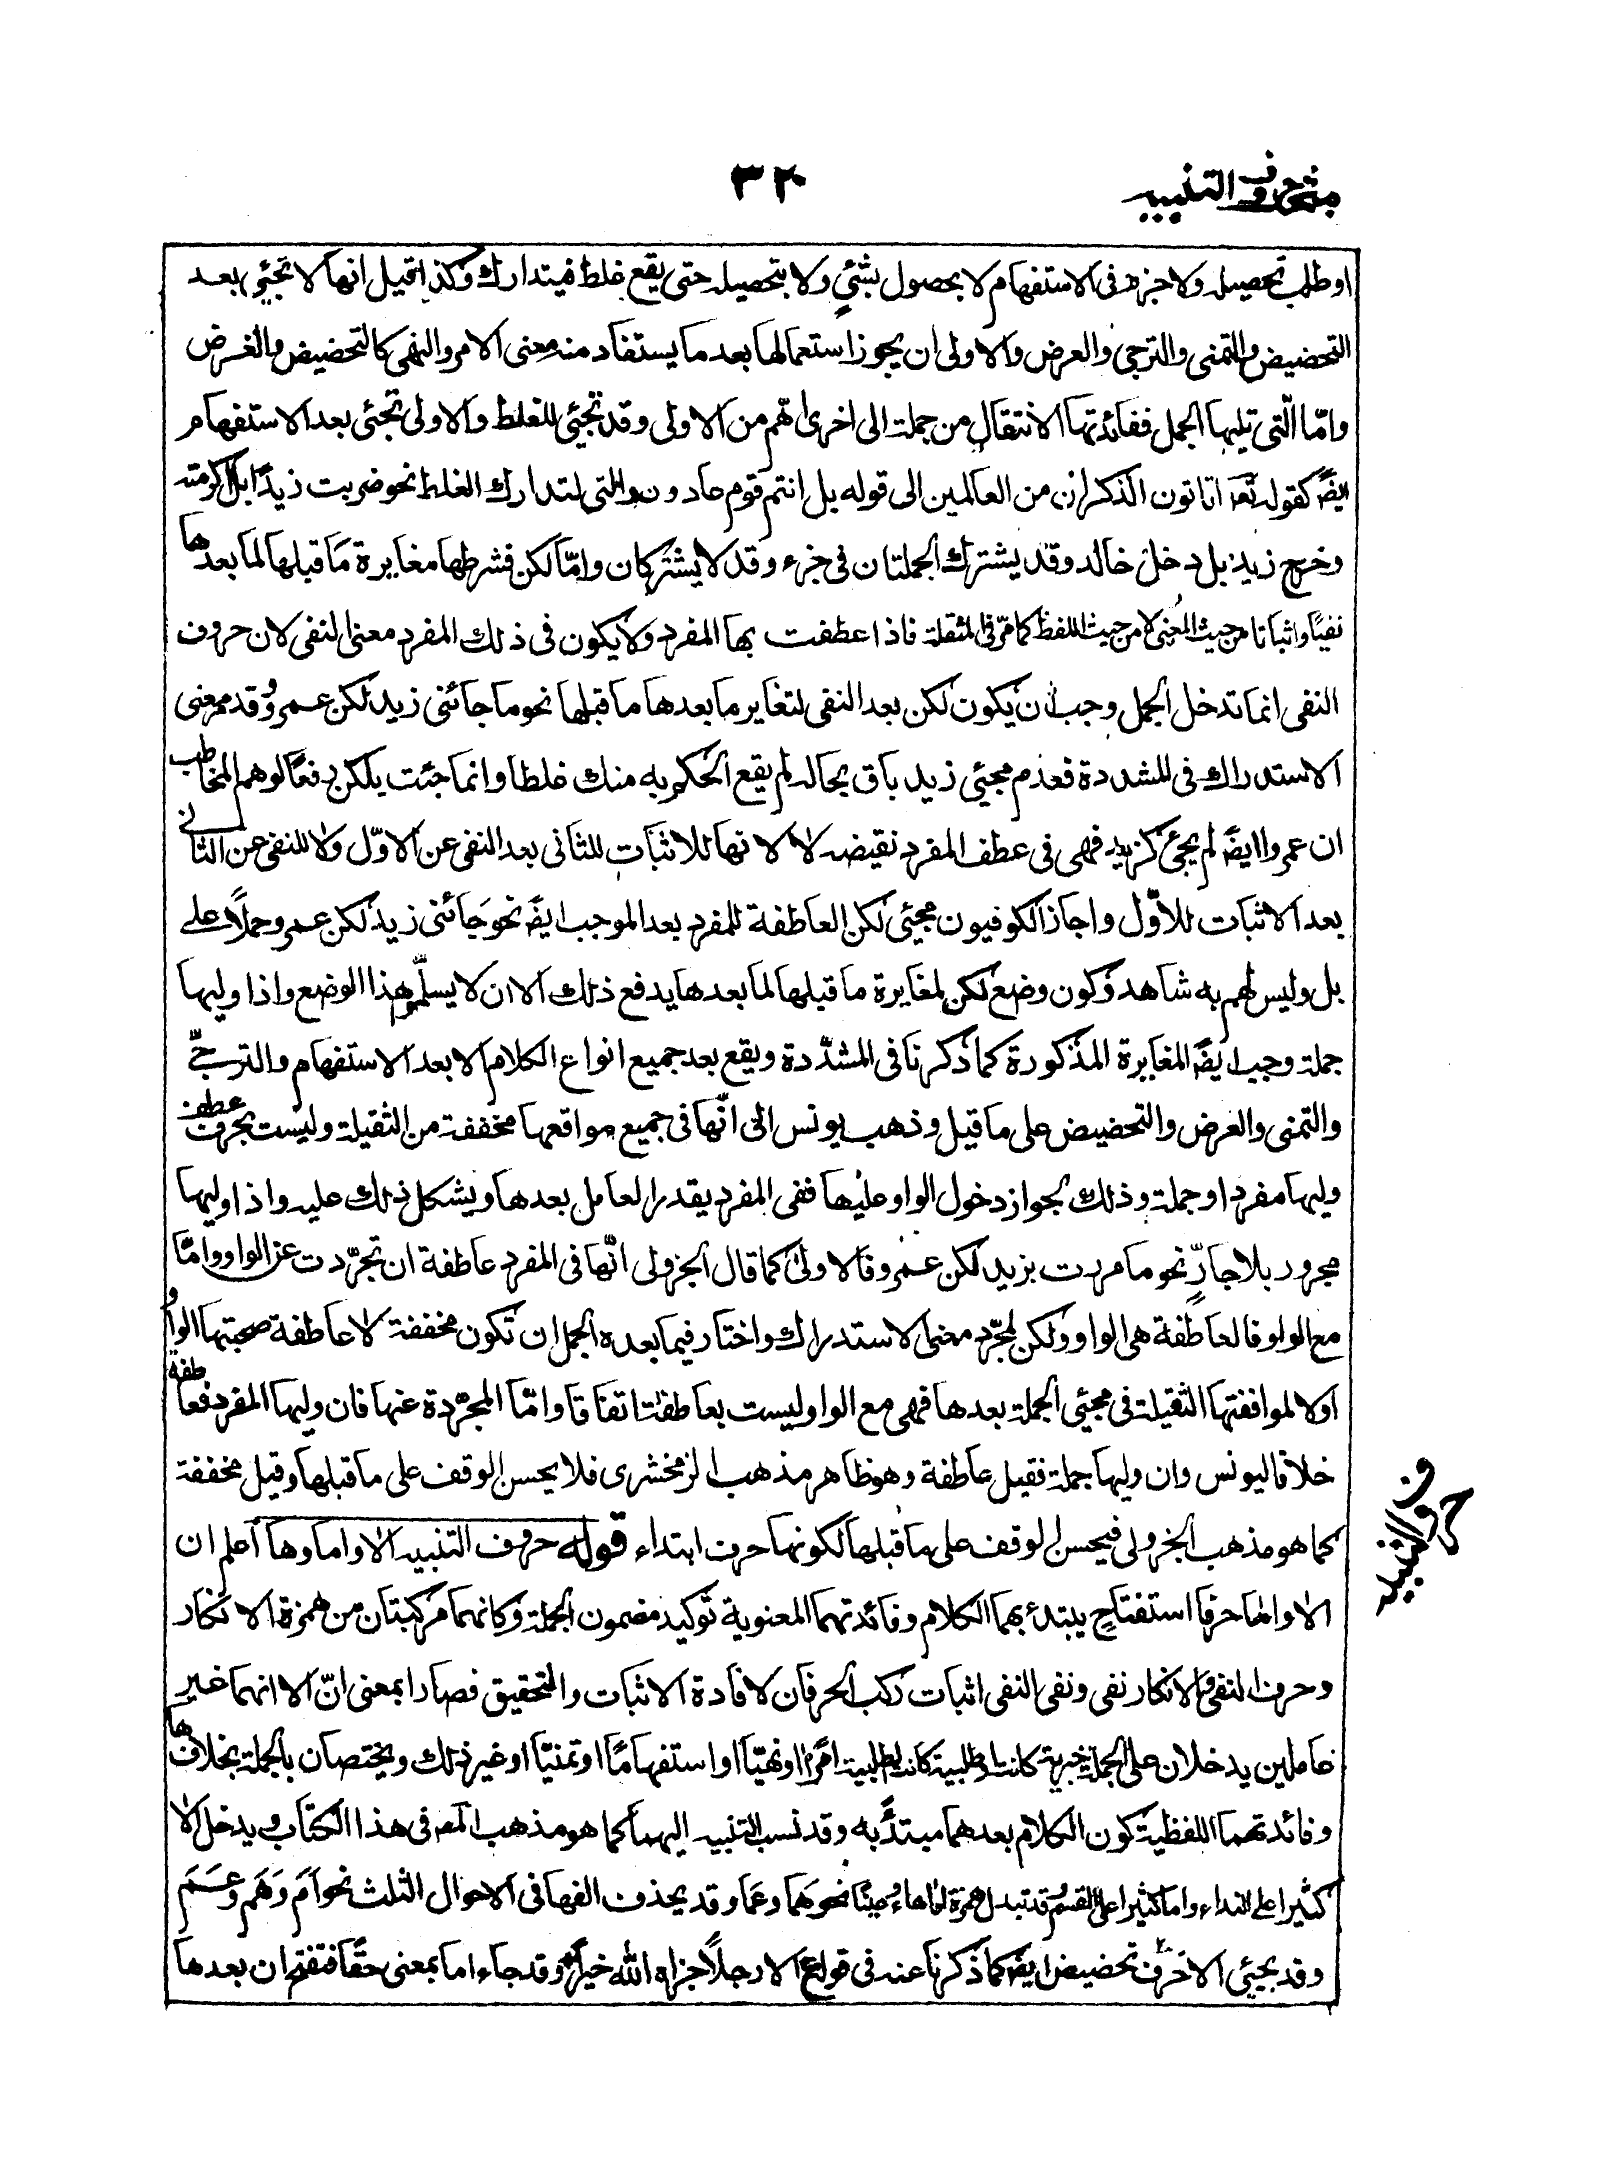 مبحث حروف التنبيه
٣٢٠
او طلب تحصيله ولا جزم فى الاستفهام لا بحصول شئي ولا بتحصيله حتى يقع غلط فيتدارك وكذا قيل انها لا تجئي بعد
التحضيض والتمنى والترجى والعرض والاولى ان يجوز استعمالها بعد ما يستفاد منه معنى الامر والنهى كالتحضيض والعرض
وامّا الّتى تليها الجمل ففائدتها الانتقال من جملة الى اخرى اهمّ من الاولى وقد تجئي للغلط والاولى تجئي بعد الاستفهام
ايضً كقوله تعَ اتاتون الذكران من العالمين الى قوله بل انتم قوم عادون والتى لتدارك الغلط نحو ضربت زيدًا بل اكرمته
وخرج زيد بل دخل خالد وقد يشترك الجملتان فى جزء وقد لا يشتركان وامّا لكن فشرطها مغايرة ما قبلها لما بعدها
نفيًا واثباتا من حيث المعنى لا من حيث اللفظ كما مرّ فى المثقلة فاذا عطفت بها المفرد ولا يكون فى ذلك المفرد معنى النفى لان حروف
النفى انما تدخل الجمل وجب ان يكون لكن بعد النفى لتغاير ما بعدها ما قبلها نحو ما جائنى زيد لكن عمرو وقد مر معنى
الاستدراك فى المشددة فعدم مجيئي زيد باق بحاله لم يقع الحكم به منك غلطا وانما جئت بلكن دفعًا لوهم المخاطب
ان عمروا ايضً لم يجئ كزيد فهى فى عطف المفرد نقيضه لا لانها للاثبات للثانى بعد النفى عن الاوّل ولا للنفى عن الثانى
بعد الاثبات للاوّل واجاز الكوفيون مجيئي لكن العاطفة للمفرد بعد الموجب ايضً نحو جائنى زيد لكن عمرو حملًا على
بل وليس لهم به شاهد وكون وضع لكن لمغايرة ما قبلها لما بعدها يدفع ذلك الا ان لا يسلّموا هذا الوضع واذا وليها
جملة وجب ايضً المغايرة المذكورة كما ذكرنا فى المشدّدة ويقع بعد جميع انواع الكلام الا بعد الاستفهام والترجّى
والتمنى والعرض والتحضيض على ما قيل وذهب يونس الى انّها فى جميع مواقعها مخففة من الثقيلة وليست بحرف عطف
وليها مفرد او جملة وذلك لجواز دخول الواو عليها ففى المفرد يقدر العامل بعدها ويشكل ذلك عليه واذا وليها
مجرور بلا جارّ نحو ما مررت بزيد لكن عمرو فالاولى كما قال الجزولى انّها فى المفرد عاطفة ان تجرّدت عن الواو وامّا
مع الواو فالعاطفة هى الواو ولكن لمجرّد معنى الاستدراك واختار فيما بعده الجمل ان تكون مخففة لا عاطفة صحبتها الواو
اولا لموافقتها الثقيلة فى مجيئي الجملة بعدها فهى مع الواو ليست بعاطفة اتفاقا وامّا المجرّدة عنها فان وليها المفرد فعاطفة
خلافا ليونس وان وليها جملة فقيل عاطفة وهو ظاهر مذهب الزمخشرى فلا يحسن الوقف على ما قبلها وقيل مخففة
كما هو مذهب الجزولى فيحسن الوقف على ما قبلها لكونها حرف ابتداء قوله حروف التنبيه الا واما وها اعلم ان
الا واما حرفا استفتاح يبتدء بهما الكلام وفائدتهما المعنوية توكيد مضمون الجملة وكانهما مركبتان من همزة الانكار
وحرف النفى والانكار نفى ونفى النفى اثبات ركب الحرفان لافادة الاثبات والتحقيق فصارا بمعنى انّ الا انهما غير
عاملين يدخلان على الجملة خبرية كانت او طلبية كانت الطلبية امرًا او نهيّا او استفهامًا او تمنيّا او غير ذلك ويختصان بالجملة بخلاف ها
وفائدتهما اللفظية كون الكلام بعدهما مبتدًء به وقد نسب التنبيه اليهما كما هو مذهب المص فى هذا الكتاب ويدخل الا
كثيرا على النداء واما كثيرا على القسم وقد تبدل همزة اما هاء وعينًا نحو هَما وعَما وقد يحذف الفها فى الاحوال الثلث نحو اَمَ وهَم وعَمَ
وقد يجيئي الا حرف تحضيض ايضً كما ذكرنا عنه فى قوله ع الا رجلًا جزاه الله خيرًا وقد جاء اما بمعنى حقًا فتفتح ان بعدها
حروف التنبيه